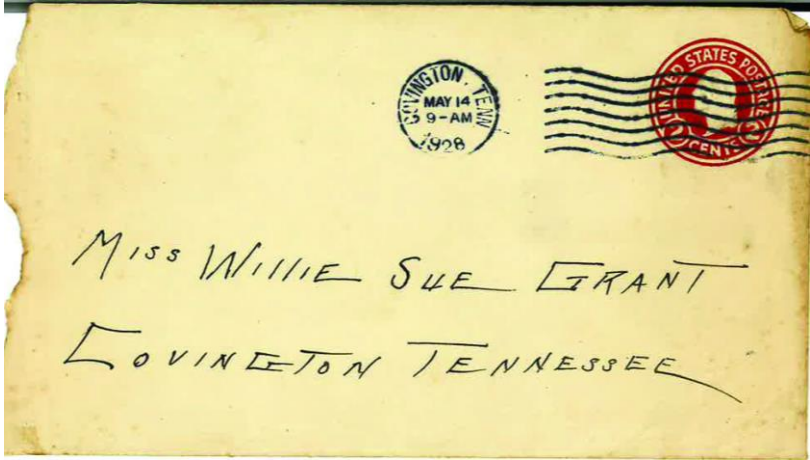 COVINGTON, TENN
MAY 14
9-AM
1928
UNITED STATES POSTAGE
2 CENTS 2
Miss Willie Sue Grant
Covington Tennessee